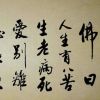 佛曰
人生有八苦
生老病死
愛別離